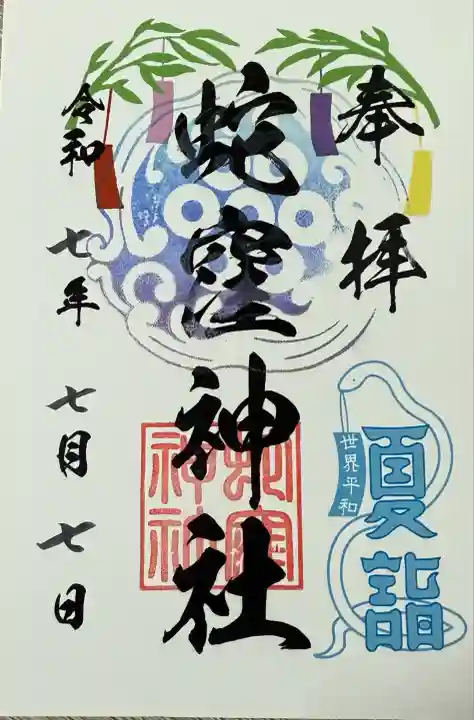 奉拝
夏詣
世界平和
蛇窪神社
蛇窪
神社
令和 七年 七月 七日